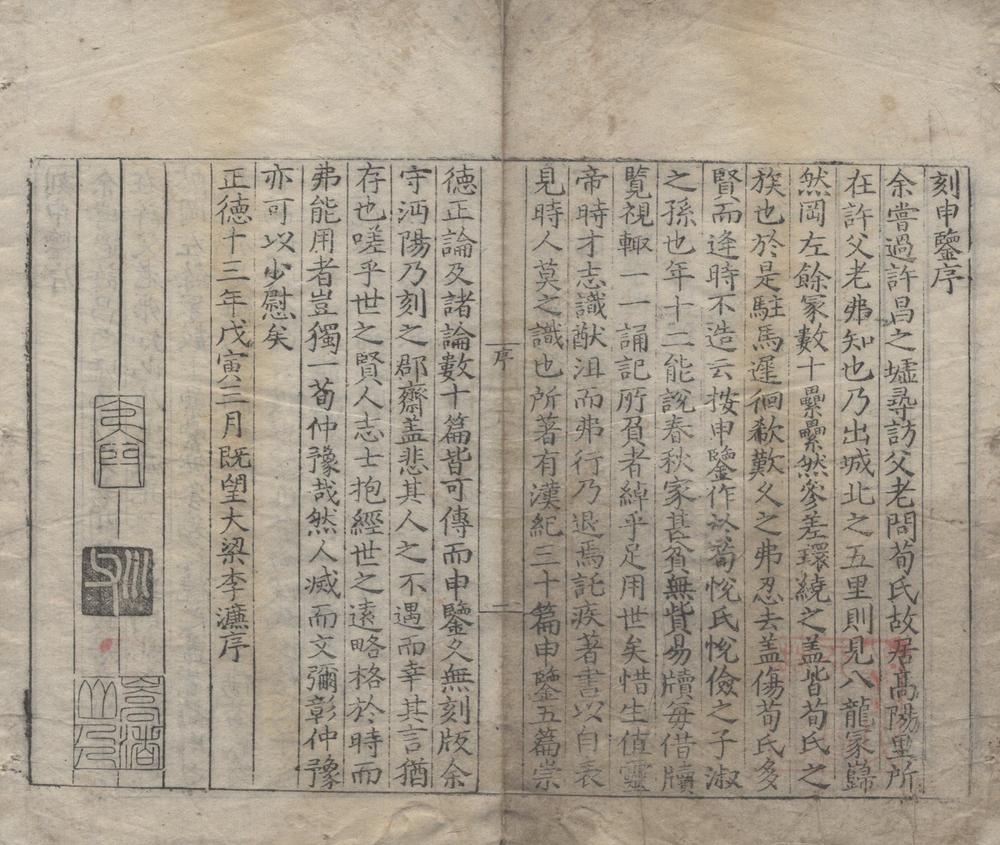 刻申鑒序
余嘗過許昌之墟尋訪父老問荀氏故居高陽里所
在許父老弗知也乃出城北之五里則見八龍冢巋
然岡左餘冢數十纍纍然參差環繞之盖皆荀氏之
族也於是駐馬遲徊歎歎久之弗忍去盖傷荀氏多
賢而逢時不造云按申鑒作於荀悅氏悅儉之子淑
之孫也年十二能說春秋家甚貧無貲易牘每借牘
覽視輙一一誦記所負者綽乎足用世矣惜生值靈
帝時才志識猷沮而弗行乃退焉託疾著書以自表
見時人莫之識也所著有漢紀三十篇申鑒五篇崇
序
二
德正論及諸論數十篇皆可傳而申鑒久無刻版余
守沔陽乃刻之郡齋盖悲其人之不遇而幸其言猶
存也嗟乎世之賢人志士抱經世之遠略格於時而
弗能用者豈獨一荀仲豫哉然人滅而文彌彰仲豫
亦可以少慰矣
正德十三年戊寅二月既望大梁李濂序
川父
嵩渚山人